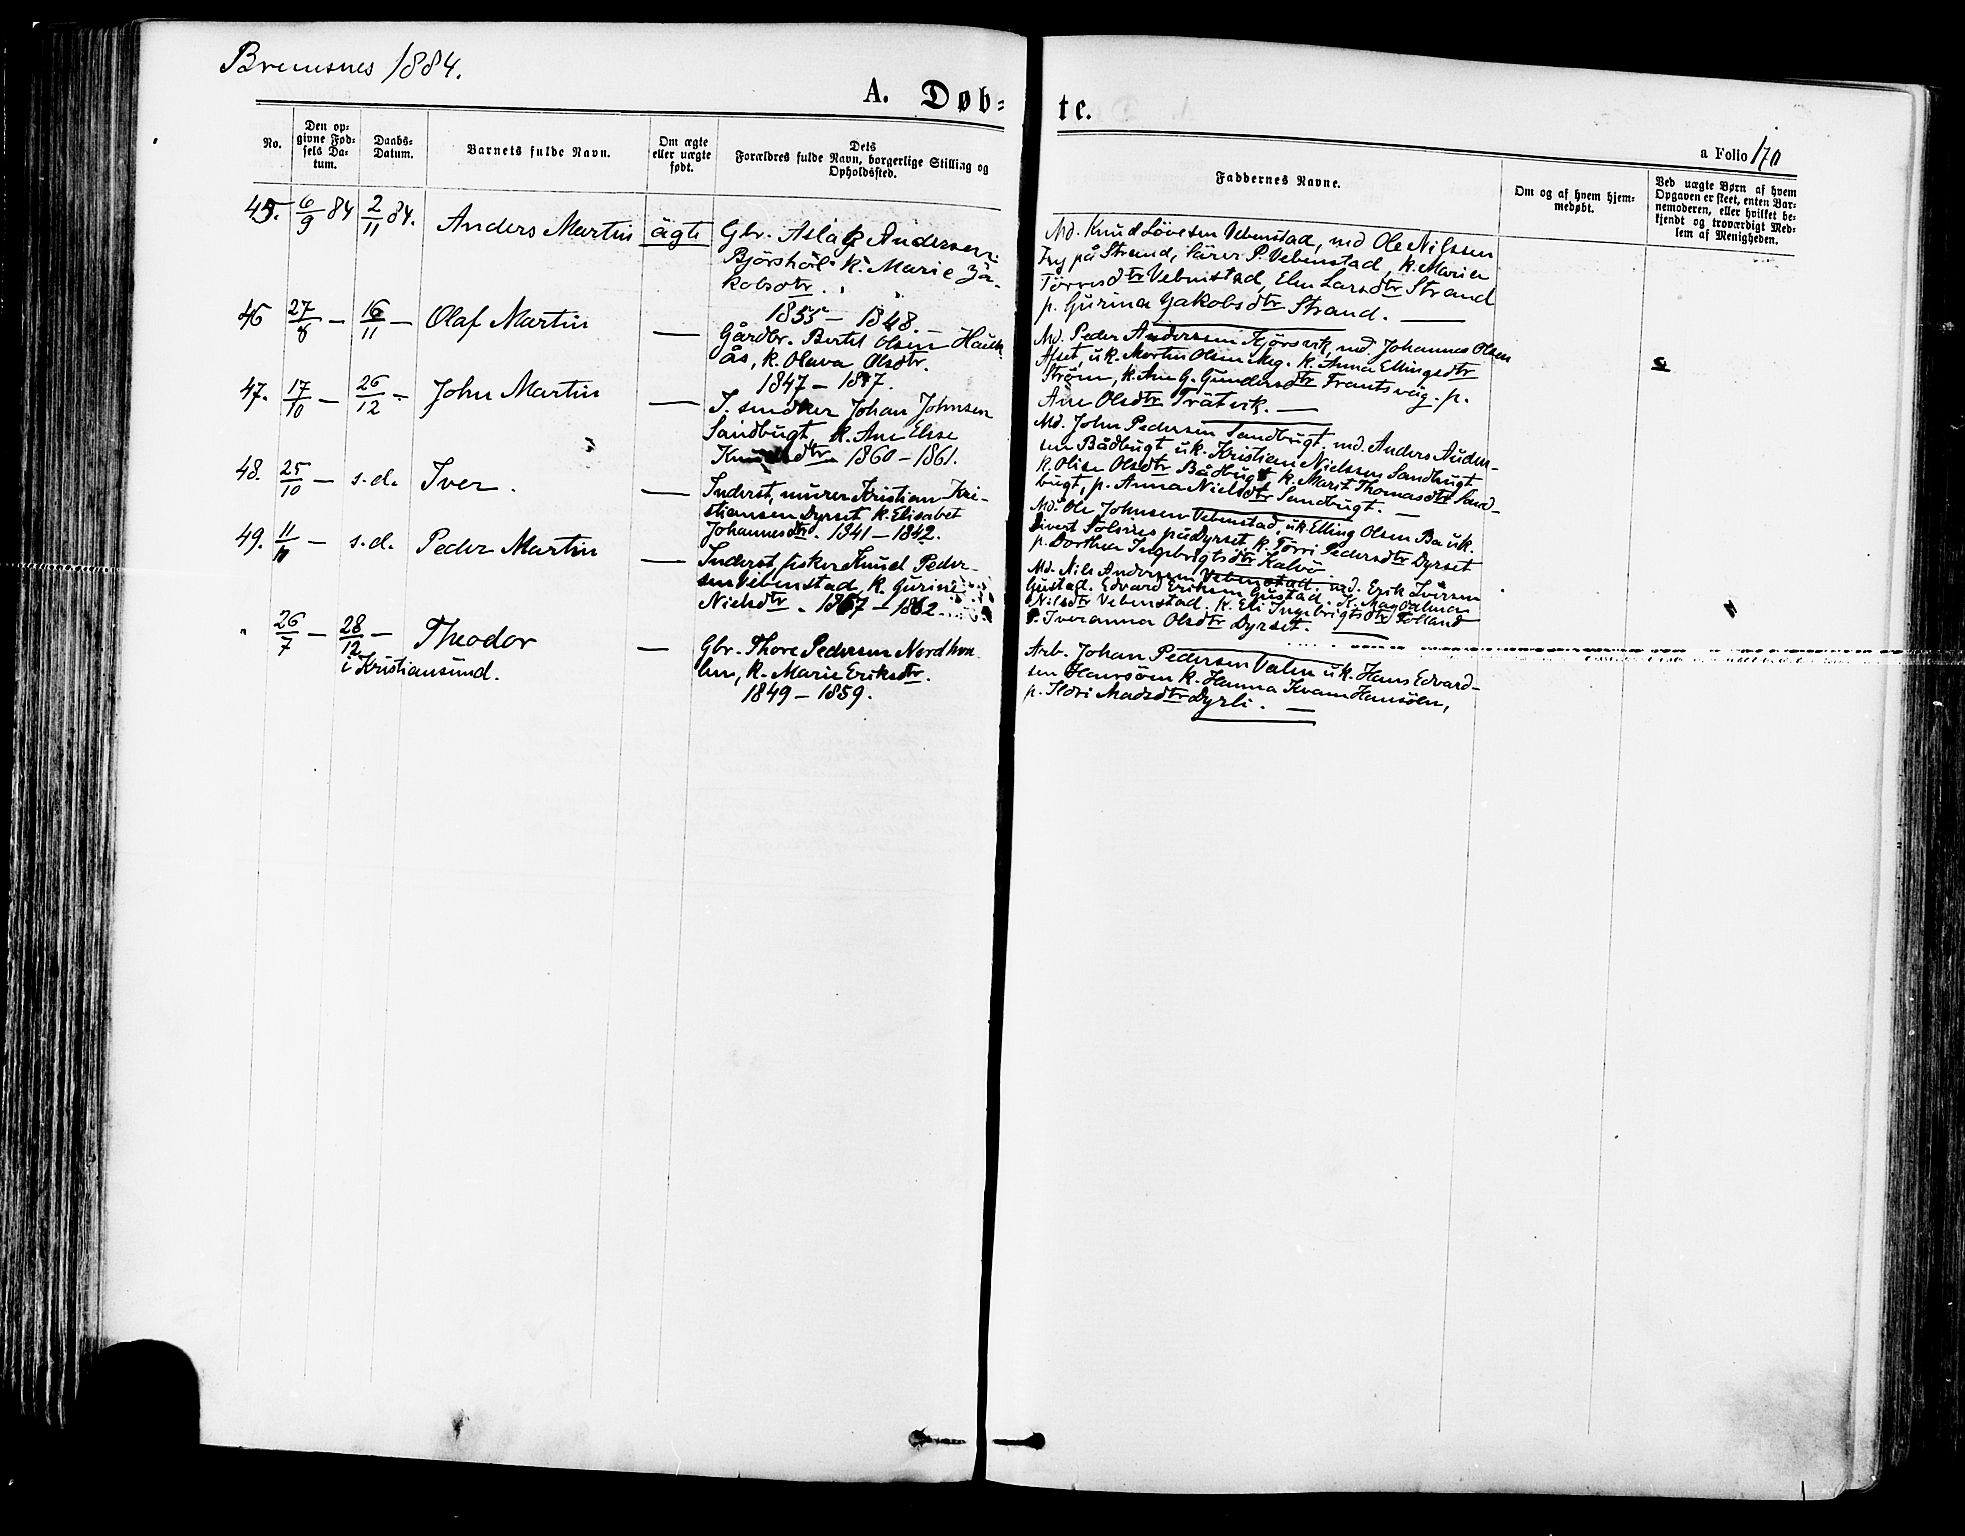 Bremsnes 1884.
A. Døb=
te.
a Folio 170
No.
Den op=
givne Fød=
sels Da=
tum.
Daabs=
Datum.
Barnets fulde Navn.
Om ægte
eller uægte
født.
Dets
Forældres fulde Navn, borgerlige Stilling og
Opholdssted.
Faddernes Navne.
Om og af hvem hjem=
medøbt.
Ved uægte Børn af hvem
Opgaven er skeet, enten Bar=
nemoderen, eller hvilket be=
kjendt og troværdigt Med=
lem af Menigheden.
45. 6/9 84 2/11 84. Anders Martin ägte
Gbr. Aslak Andersen
k. Marie Ja-
kobsdtr.
1855 - 1848.
Md. Knud Løvesen Vebenstad, md Ole Nilssen
Fry på Strand, P. Vebenstad, k. Maria
Vebenstad, Elen Larsdtr Strand
p. Gurina Jakobsdtr Strand. —
46 27/8 — 16/11 — Olaf Martin —
Gårdbr. Bertel Olsen
ås, k. Olava Olsdtr.
1847 - 1877.
Md. Peder Andersen md. Johannes Olsen
u.k. Martin Olsen k. Anna Ellingsdtr
Strøm, k. Ane G. Gundersdtr Frantsvåg. p.
Ane Olsdtr Trätvik. —
47. 17/10 — 26/12 - John Martin —
Johan Johnsen
Sandbugt, k. Ane Elise
Knudsdtr 1860 - 1861.
Md. John Pedersen Sandbugt, md. Anders Ander-
sen Bådbugt u.k. Kristian Nielssen Sandbugt
k. Olise Olsdtr Bådbugt k. Marit Thomasdtr Sand-
bugt, p. Anna Nielsdtr Sandbugt. —
48. 25/10 — s.d. Iver. —
Inderst, murer Kristian Kri-
stiansen Dyrset k. Elisabet
Johannesdtr. 1841 - 1842.
Md. Ole Johnsen Vebenstad, u.k. Elling Olsen u.k.
Sivert på Dyrset k. Pedersdtr Dyrset
p. Dorthea Ingebrigtsdtr Kalvø
49. 11/11 — s.d. Peder Martin —
Inderst, fisker Knud Peder-
sen Vebenstad, k. Gurine
Nielsdtr. 1857 - 1862
Md. Nils Andersen Vebenstad. md. Erik Iversen
Gustad. Edvard Eriksen Gustad. k. Magdalena
Nilsdtr Vebenstad. k. Eli Ingebrigtsdtr Folland
p. Iveranna Olsdtr Dyrset. —
" 26/7 — 28/12 — Theodor —
i Kristiansund.
Gbr. Thore Pedersen Nordhou-
len, k. Marie Eriksdtr.
1849 - 1859.
Arb. Johan Pedersen Valen u.k. Hans Edvard-
sen k. Hanna Kvam
p. Ildri Madsdtr Dyrli. —